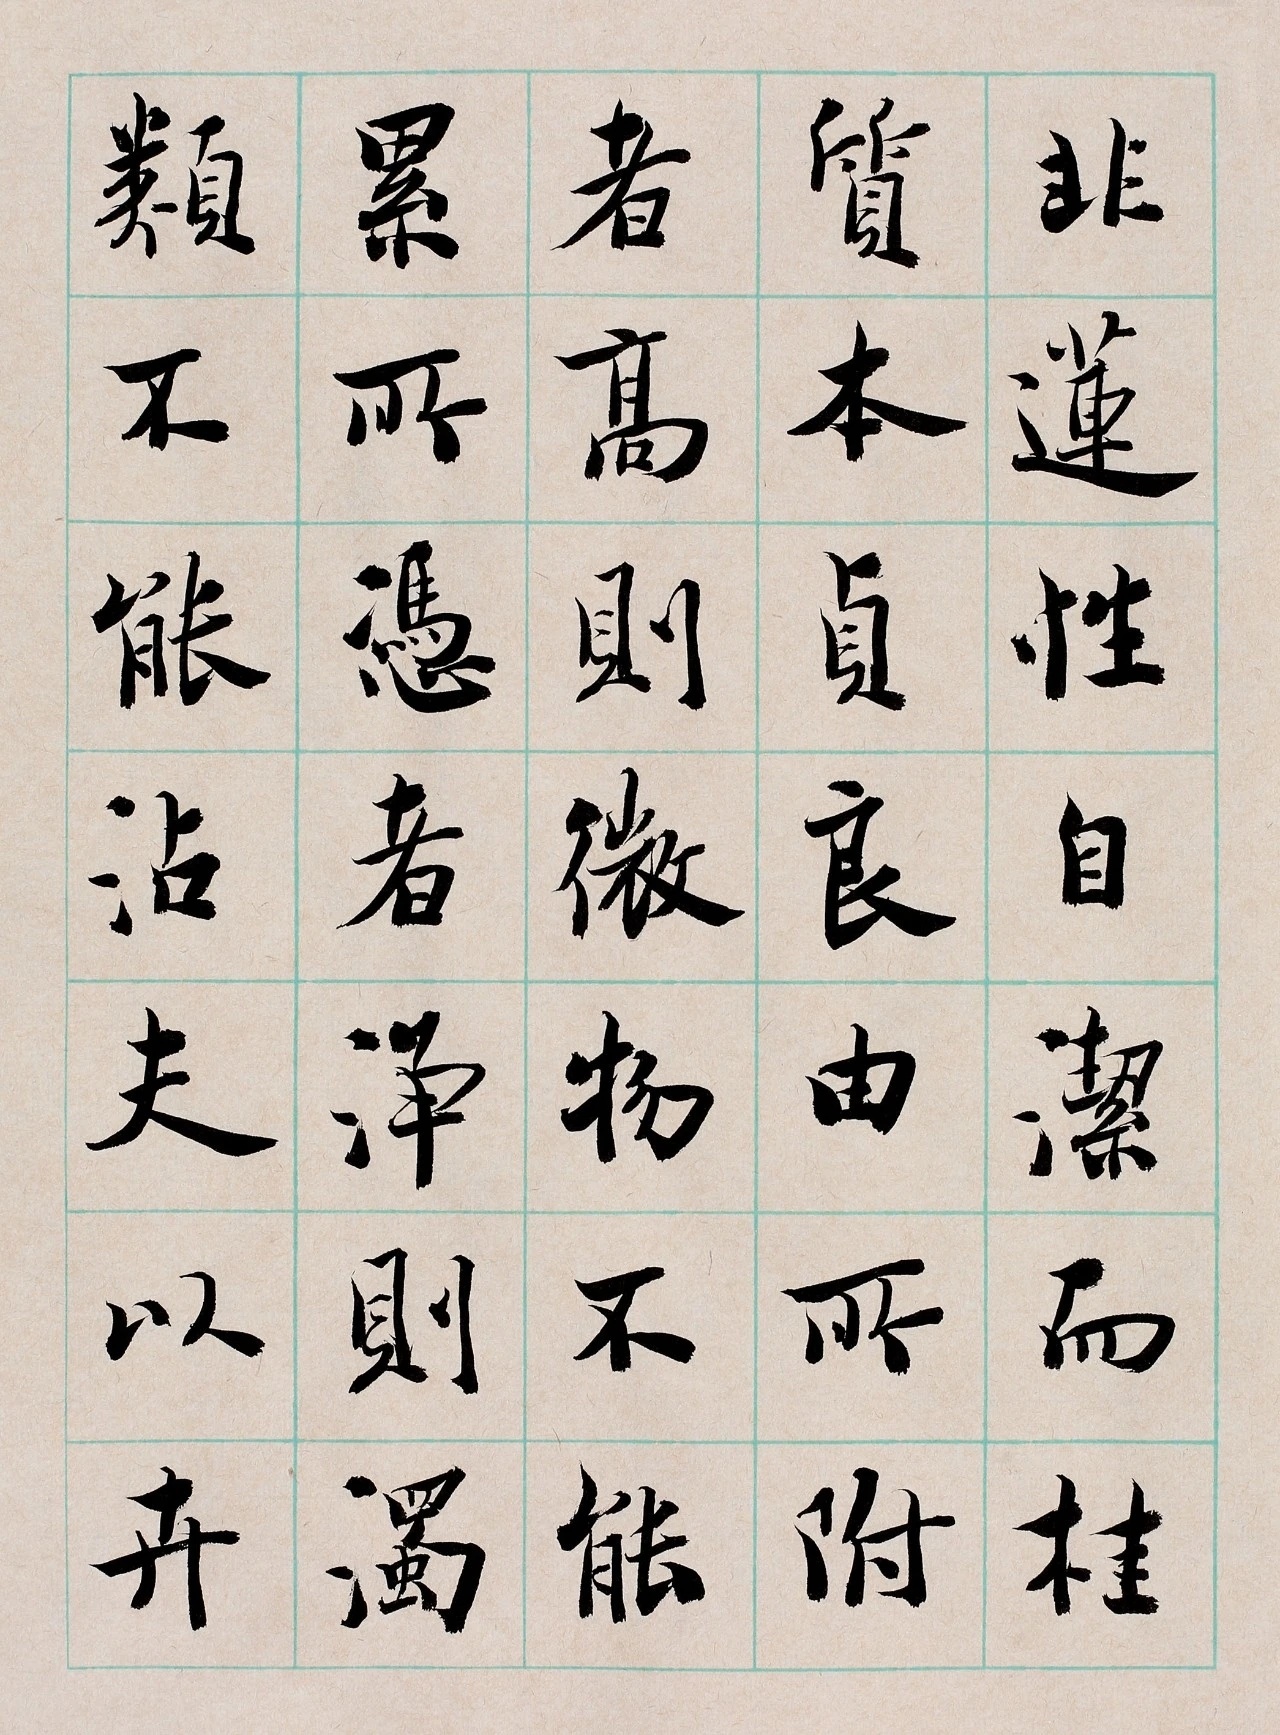 非蓮性自潔而桂
質本貞良由所附
者高則微物不能
累所憑者淨則濁
類不能沾夫以卉